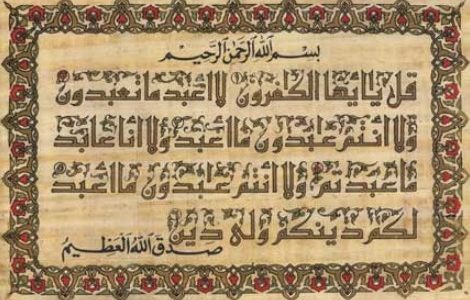 بسم الله الرحمن الرحيم
قل يا أيها الكفرون لا أعبد ما تعبدون
ولا أنتم عبدون ما أعبد ولا أنا عابد
ما عبدتم ولا أنتم عبدون ما أعبد
لكم دينكم ولي دين
صدق الله العظيم